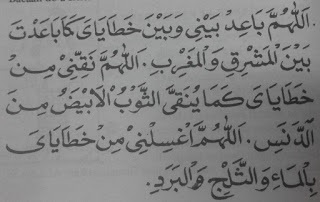 اَللّٰهُمَّ بَاعِدْ بَيْنِيْ وَبَيْنَ خَطَايَايَ كَمَا بَاعَدْتَ
بَيْنَ الْمَشْرِقِ وَالْمَغْرِبِ. اَللّٰهُمَّ نَقِّنِيْ مِنْ
خَطَايَايَ كَمَا يُنَقَّى الثَّوْبُ الْأَبْيَضُ مِنَ
الدَّنَسِ. اَللّٰهُمَّ اغْسِلْنِيْ مِنْ خَطَايَايَ
بِالْمَاءِ وَالثَّلْجِ وَالْبَرَدِ.